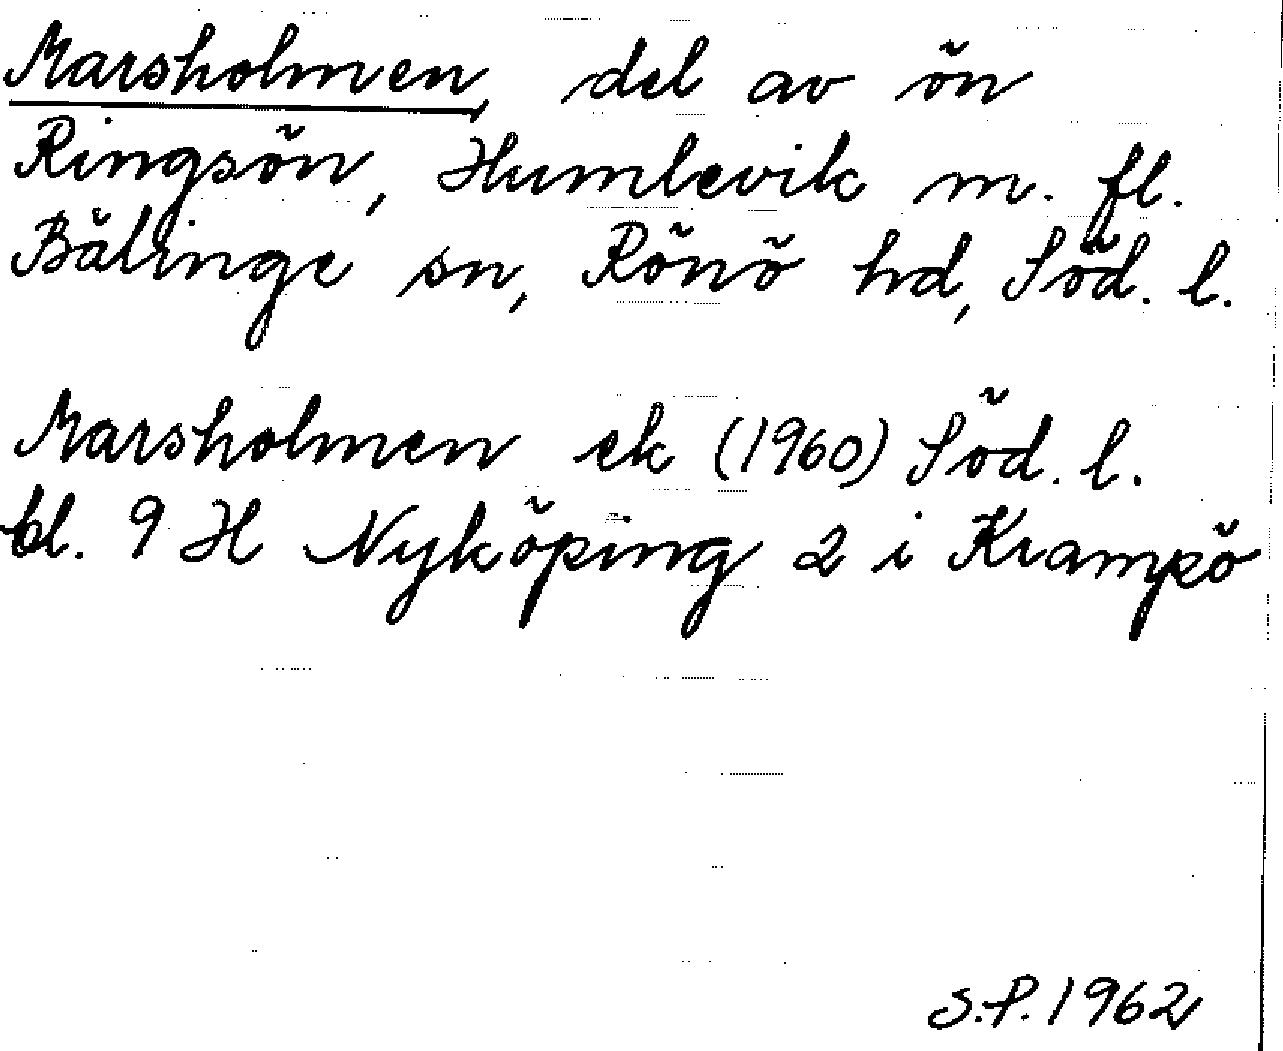 Marsholmen, del av ön
Ringsön, Humlevik m. fl.
Bälinge sn, Rönö hd, Söd. l.
Marsholmen ek (1960) Söd. l.
bl. 9 H Nyköping 2 i Krampö
S.P. 1962